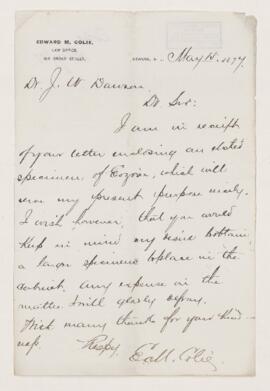 EDWARD M. COLIE,
LAW OFFICE,
BROAD STREET,
NEWARK, N. J. May 15, 1877
Dr. J. W. Dawson.
Dr Sir:
I am in receipt
of your letter enclosing an etched
specimen of Eozoon, which will
serve my present purpose nicely.
I wish however, that you would
keep in mind my desire to obtain
a large specimen to place in the
cabinet. Any expense in the
matter I will gladly defray.
With many thanks for your kind-
ness
Respy,
Ed. M. Colie.